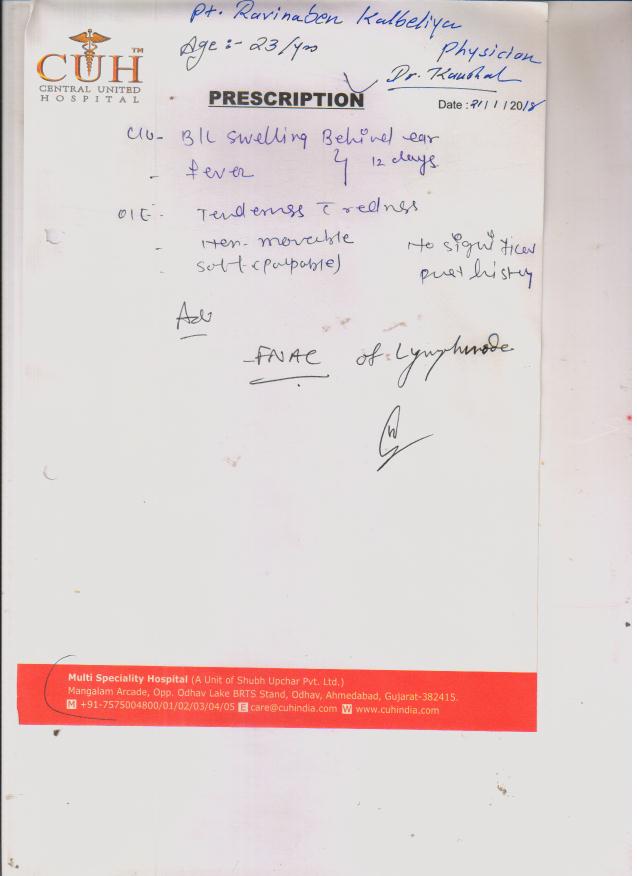 Pt. Ravinaben Kalbeliya
Age :- 23/yrs
Physician
Dr. Kaushal
CUH™
CENTRAL UNITED
HOSPITAL
PRESCRIPTION
Date : 21/1/2018
C/O- B/L swelling Behind ear
- fever } 12 days
O/E- Tenderness c̄ redness
- Non-movable
- soft (palpable)
No significan
past history
Adv
- FNAC of Lymphnode
Multi Speciality Hospital (A Unit of Shubh Upchar Pvt. Ltd.)
Mangalam Arcade, Opp. Odhav Lake BRTS Stand, Odhav, Ahmedabad, Gujarat-382415.
M +91-7575004800/01/02/03/04/05 E care@cuhindia.com W www.cuhindia.com